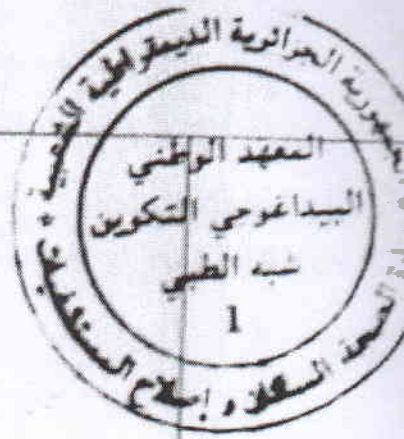 الجمهورية الجزائرية الديمقراطية الشعبية
المعهد الوطني
البيداغوجي التكوين
شبه الطبي
1
الصحة السكان و إصلاح المستشفيات